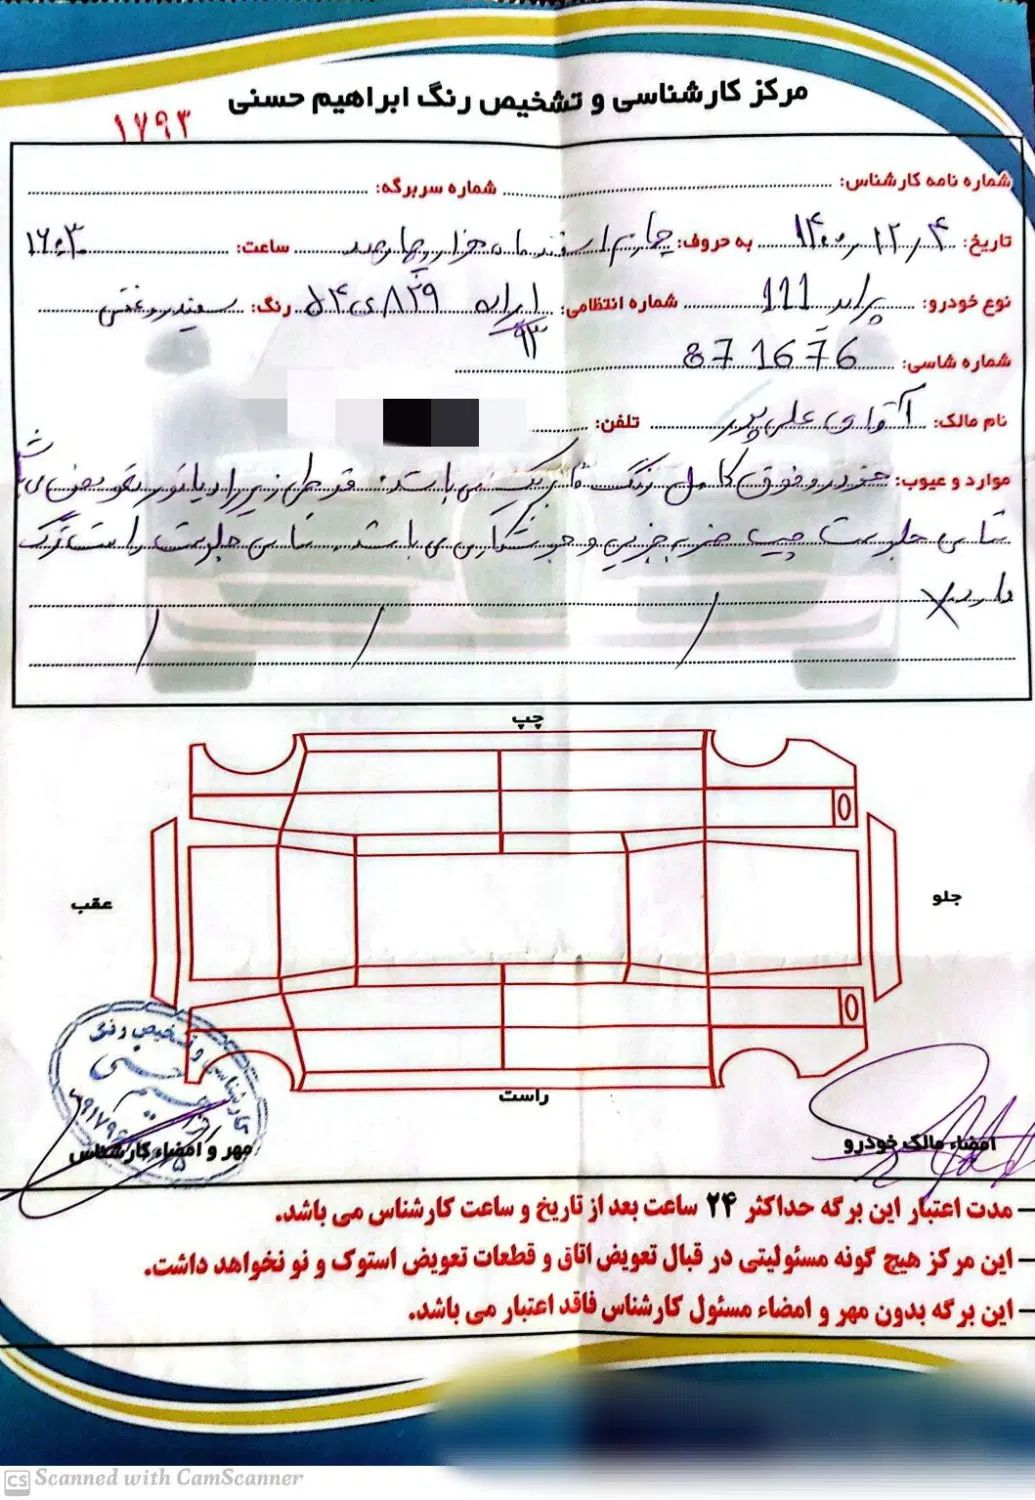 مرکز کارشناسی و تشخیص رنگ ابراهیم حسنی
۱۷۹۳
شماره نامه کارشناس: شماره سربرگه:
تاریخ: ۱۴۰۰/۱۲/۴ به حروف: چهارم اسفند ماه هزار و چهارصد ساعت: ۱۶:۳۰
نوع خودرو: پراید 111 شماره انتظامی: ایران ۹۳ ۸۲۹ ی ۵۴ رنگ: سفید روغنی
شماره شاسی: 871676
نام مالک: آقای علی پور تلفن:
موارد و عیوب: خودرو فوق کامل رنگ فابریک می باشد. قدامی زیر رادیاتور تعویض می
شاسی جلو سمت چپ ضربه خورده و جوشکاری می باشد. شاسی جلو سمت راست ترک
دارد
چپ
عقب
جلو
راست
کارشناسی و تشخیص رنگ
مهر و امضاء کارشناس
امضاء مالک خودرو
– مدت اعتبار این برگه حداکثر ۲۴ ساعت بعد از تاریخ و ساعت کارشناس می باشد.
– این مرکز هیچ گونه مسئولیتی در قبال تعویض اتاق و قطعات تعویض استوک و نو نخواهد داشت.
– این برگه بدون مهر و امضاء مسئول کارشناس فاقد اعتبار می باشد.
CS Scanned with CamScanner